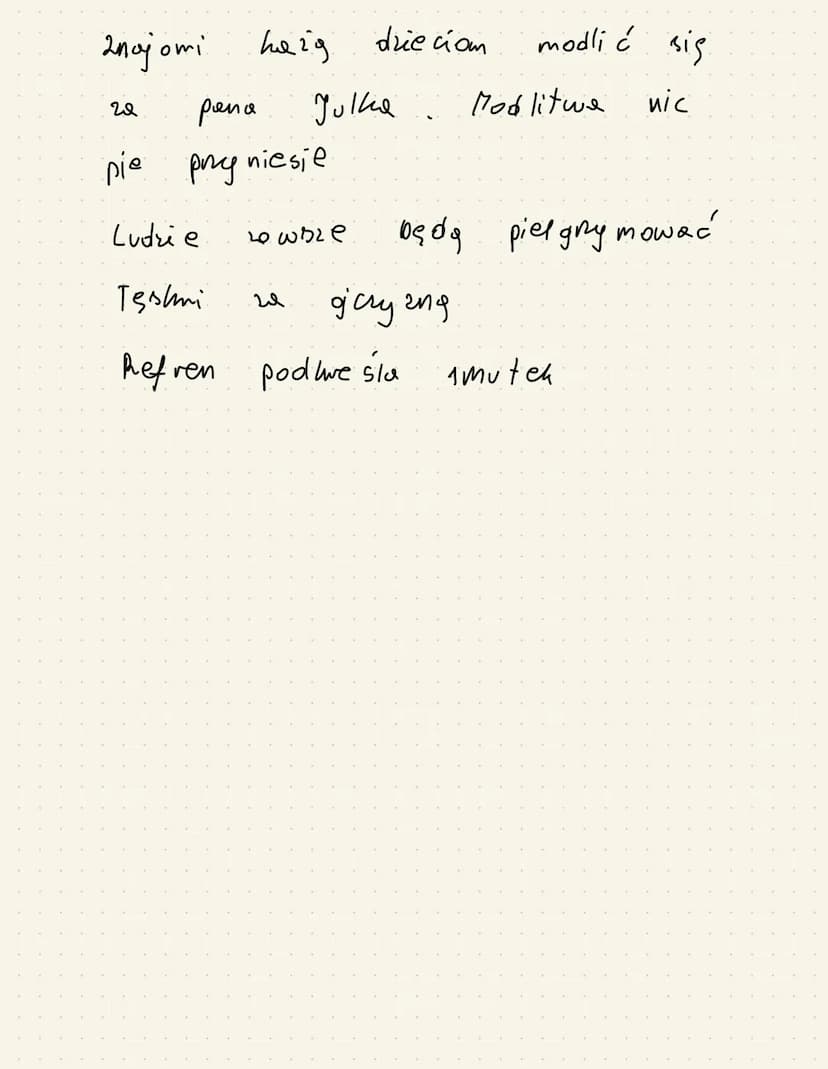 Znajomi każą dziecion modlić się
za pana Julka. Modlitwa nic
nie przyniesie
Ludzie zawsze będą pielgrzymować
Tęskni za ojczyzną
Refren podkreśla smutek